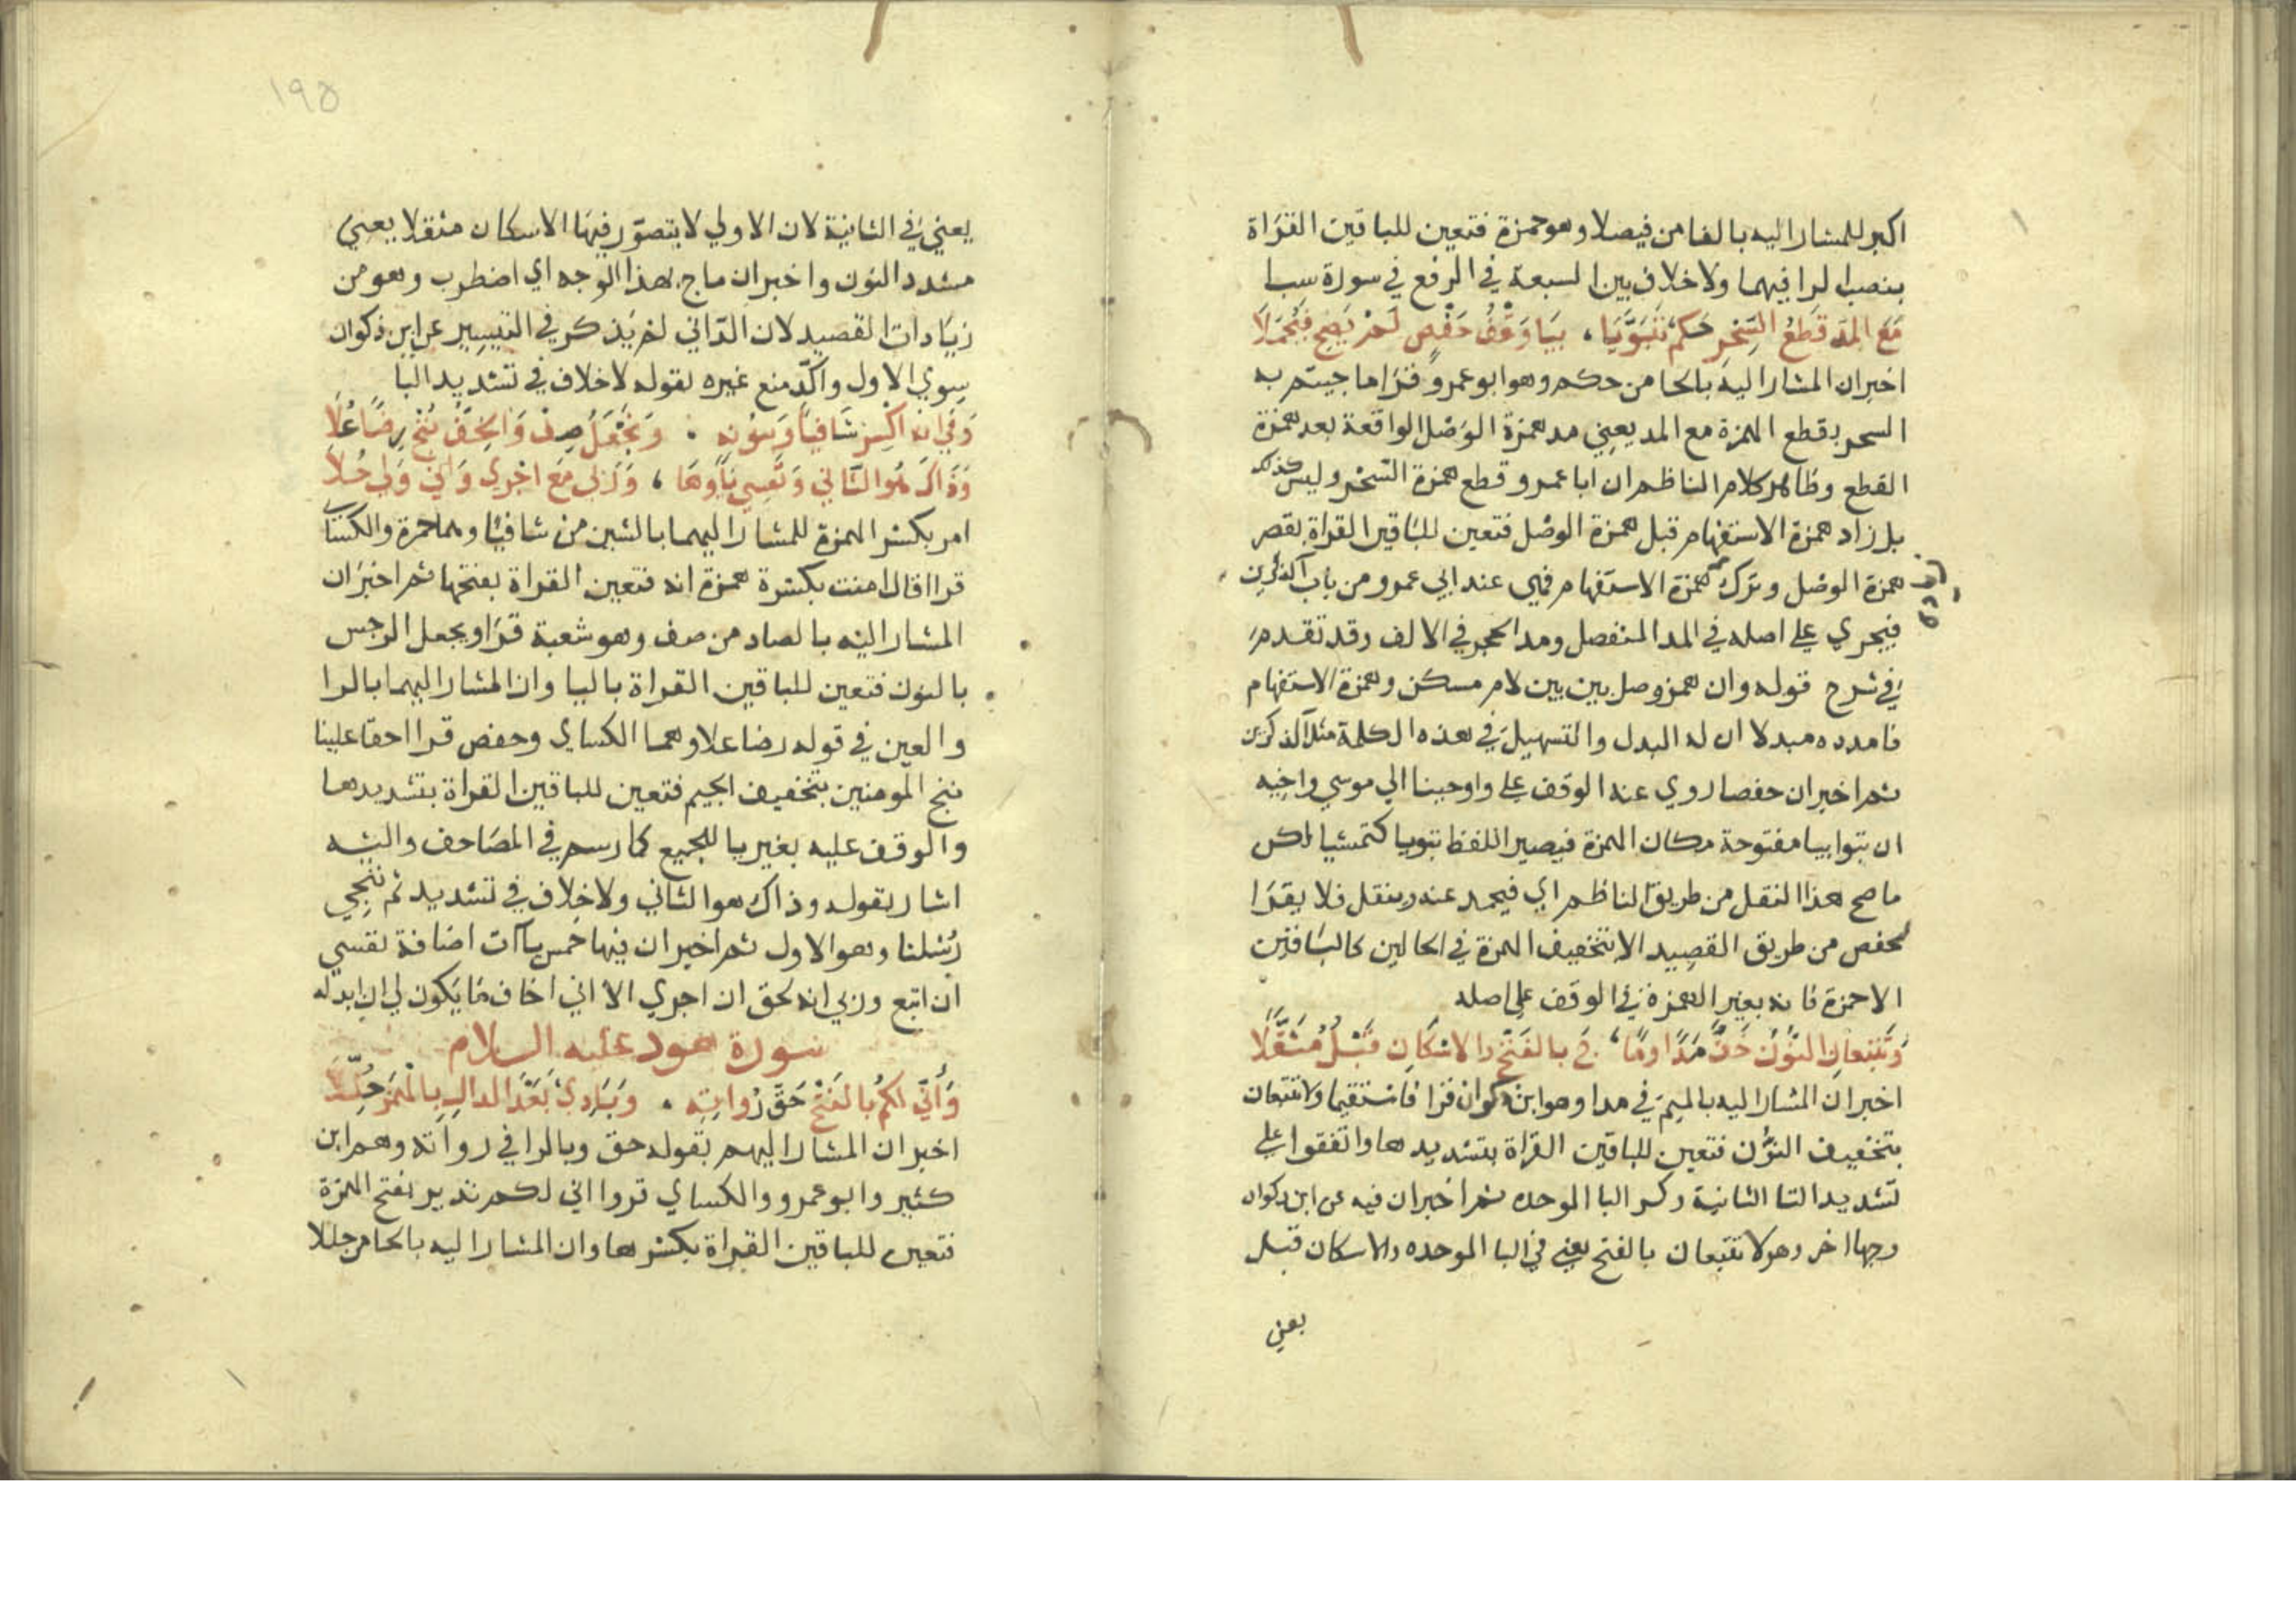 اكبر للمشار اليه بالفا من فيصلا وهو حمزة فتعين للباقين القراة
بنصب الرا فيهما ولا خلاف بين السبعة في الرفع في سورة سبا
مَعَ المَدِّ قَطْعُ السِّحْرِ حُكْمٌ تَبَوَّيَا، بيَا وَقْفُ حَفْصٍ لَمْ يَصِحّ فَيُحْمَلَا
اخبر ان المشار اليه بالحا من حكم وهو ابو عمرو قرا ما جيتم به
السحر بقطع الهمزة مع المد يعني مد همزة الوصل الواقعة بعد همزة
القطع وظاهر كلام الناظم ان ابا عمرو قطع همزة السحر وليس كذلك
بل زاد همزة الاستفهام قبل همزة الوصل فتعين للباقين القراة بقصر
همزة الوصل وترك همزة الاستفهام فهي عند ابي عمرو من باب آلذكرين
فيجري على اصله في المد المنفصل ومد الحجز في الالف وقد تقدم
في شرح قوله وان همز وصل بين بين لام مسكن وهمزة الاستفهام
فامدده مبدلا ان له البدل والتسهيل في هذه الكلمة مثل آلذكرين
ثم اخبر ان حفصا روي عنه الوقف على واوحينا الي موسي واخيه
ان تبوا بيا مفتوحة مكان الهمزة فيصير اللفظ تبويا كتمشيا لكن
ما صح هذا النقل من طريق الناظم اي فيحمل عنه وينقل فلا يقرا
لحفص من طريق القصيد الا بتحقيف الهمزة في الحالين كالباقين
الا حمزة فانه يغير الهمزة في الوقف على اصله
وَتَتَّبِعَانِ النُّونُ خَفَّ مَدًا وَمَا، جَ بالفَتْحِ والاسْكَانِ قَبْلُ مُثَقَّلَا
اخبر ان المشار اليه بالميم في مدا وهو ابن ذكوان قرا فاستقيما ولا تتبعان
بتخفيف النون فتعين للباقين القراة بتشديدها واتفقوا على
تشديد التا الثانية وكسر البا الموحده ثم اخبر ان فيه عن ابن ذكوان
وجها اخر وهو لا تتبعان بالفتح يعني في البا الموحده والاسكان قبل
يعني
١٩٥
يعني في الثانية لان الاولي لا يتصور فيها الاسكان مثقلا يعني
مشدد النون واخبر ان ماج بهذا الوجه اي اضطرب وهو من
زيادات القصيد لان الداني لم يذكر في التيسير عن ابن ذكوان
سوي الاول واكد منع غيره بقوله لا خلاف في تشديد البا
وَفِي انه اكْسِر شَافِيًا وَبنُونِهِ . وَنَجْعَلُ صِفْ وَالخِفُّ نُنْجِ رِضًا عَلَا
وَذَاكَ هُوَ الثَّانِي وَنَفْسِي يَاؤهَا، وَرَبّي مَعَ اجْرِي وَاني وَلِي حُلَا
امر بكسر الهمزة للمشار اليهما بالشين من شافيا وهما حمزة والكساي
قرا قال امنت بكسرة همزة انه فتعين القراة بفتحها ثم اخبر ان
المشار اليه بالصاد من صف وهو شعبة قرا ويجعل الرجس
بالنون فتعين للباقين القراة باليا وان المشار اليهما بالرا
والعين في قوله رضا علا وهما الكساي وحفص قرا حقا علينا
ننج المومنين بتخفيف الجيم فتعين للباقين القراة بتشديدها
والوقف عليه بغير يا للجميع كما رسم في المصاحف واليه
اشار بقوله وذاك هو الثاني ولا خلاف في تشديد ثم ننجي
رسلنا وهو الاول ثم اخبر ان فيها خمس ياآت اضافة نفسي
ان اتبع وربي انه لحق ان اجري الا اني اخاف ما يكون لي ان ابدله
سورة هود عليه السلام
وَأَنِّي لَكُمْ بالفَتْحِ حَقَّ رُوَاتِهِ . وَبَادِيَ بَعْدَ الدالِ بِالْهَمْزِ حُلِّلَا
اخبر ان المشار اليهم بقوله حق وبالرا في رواته وهم ابن
كثير وابو عمرو والكساي قروا اني لكم نذير بفتح الهمزة
فتعين للباقين القراة بكسرها وان المشار اليه بالحا من حللا